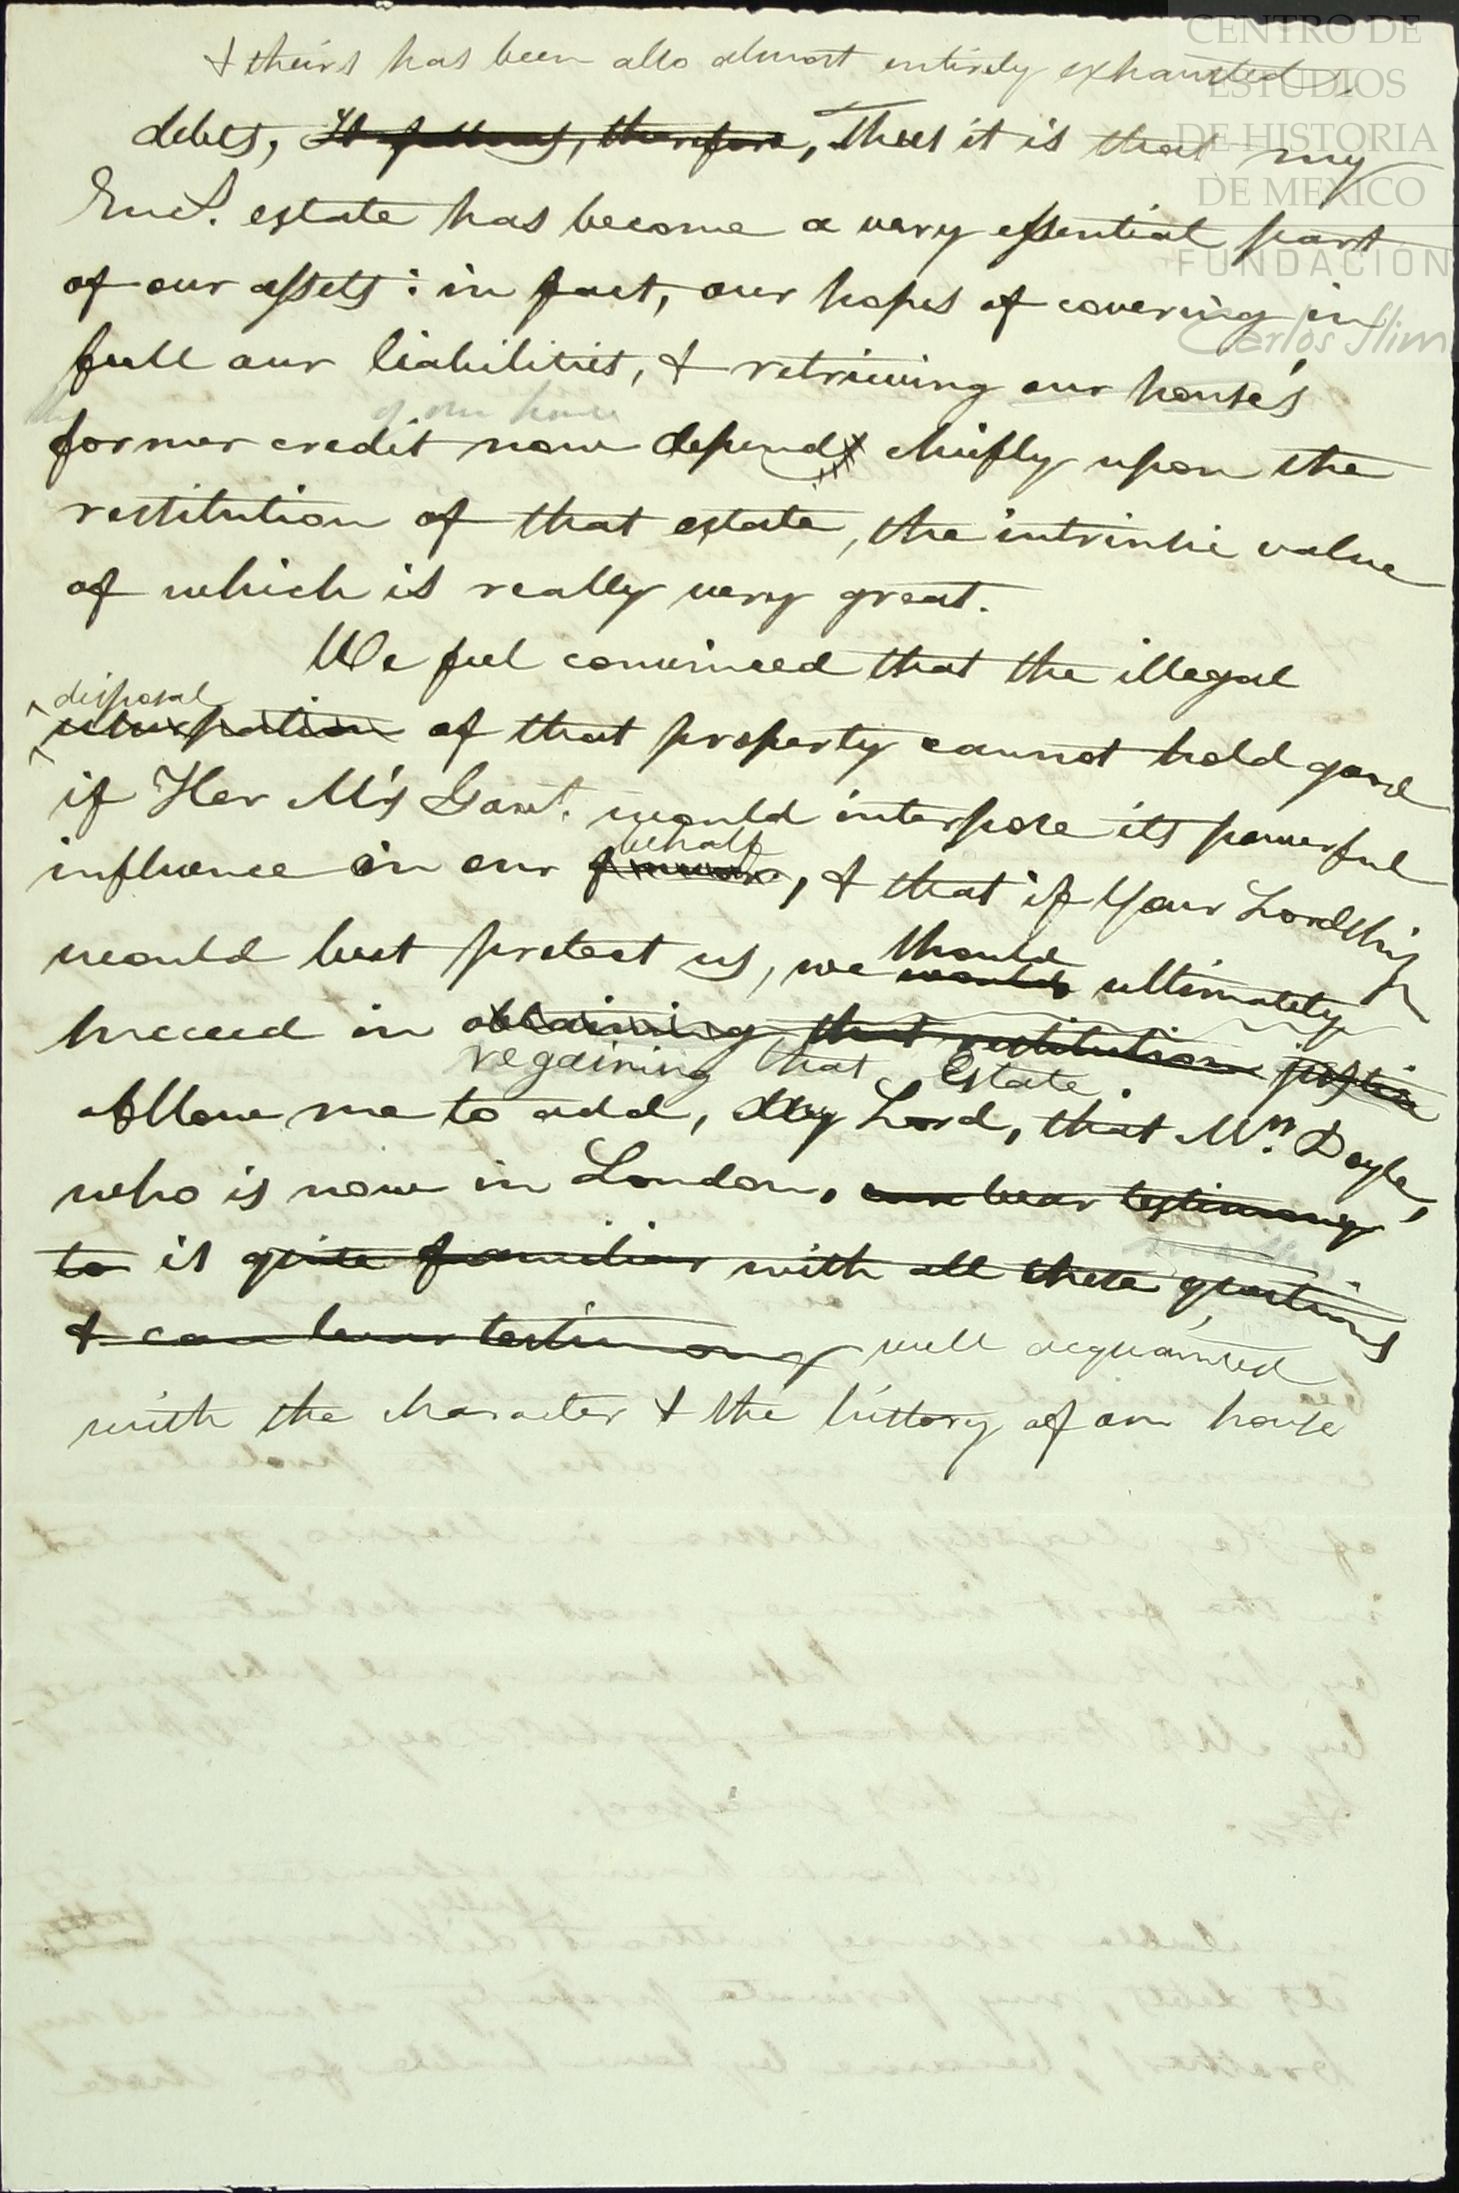 & theirs has been also almost entirely exhausted
debts, It follows, therefore, Thus it is that my
Encl. estate has become a very essential part
of our assets: in fact, our hopes of covering in
full our liabilities, & retrieving our house's
the of our house
former credit now depends chiefly upon the
restitution of that estate, the intrinsic value
of which is really very great.
We feel convinced that the illegal
disposal
usurpation of that property cannot hold good
if Her M's Govt. would interpose its powerful
behalf
influence in our favour, & that if Your Lordship
should
would but protect us, we would ultimately
succeed in obtaining that restitution justice
regaining that Estate.
Allow me to add, My Lord, that Mr. Doyle,
who is now in London, can bear testimony
to is quite familiar with all these questions
& can bear testimony well acquainted
with the character & the history of our house
CENTRO DE
ESTUDIOS
DE HISTORIA
DE MEXICO
FUNDACIÓN
Carlos Slim